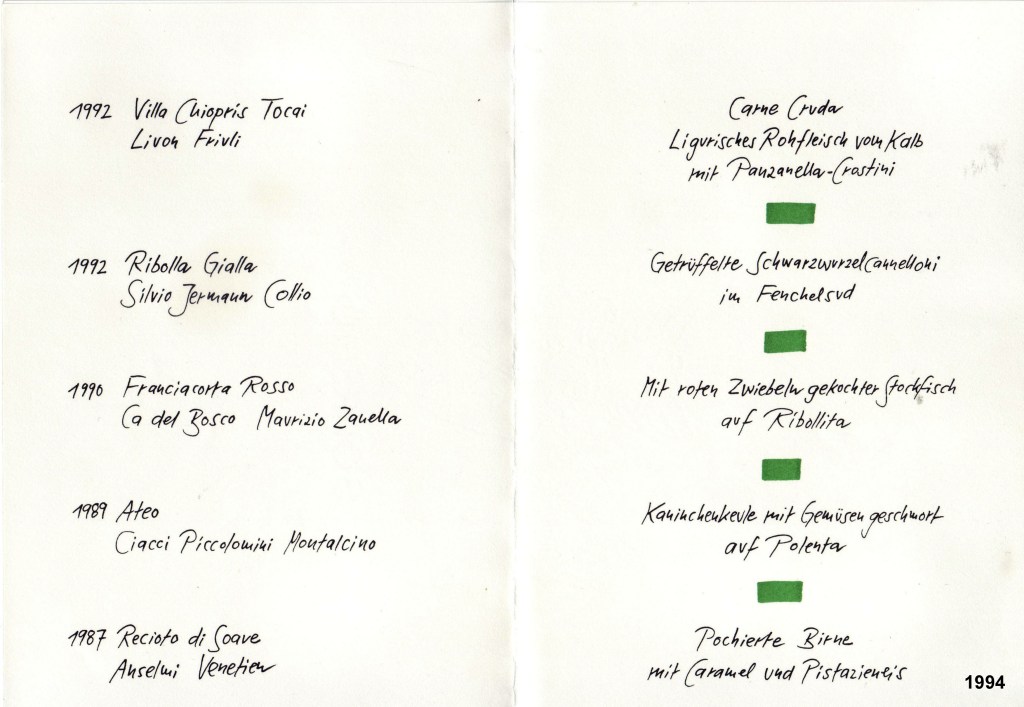 1992 Villa Chiopris Tocai
Livon Friuli
1992 Ribolla Gialla
Silvio Jermann Collio
1990 Franciacorta Rosso
Ca del Bosco Maurizio Zanella
1989 Ateo
Ciacci Piccolomini Montalcino
1987 Recioto di Soave
Anselmi Venetien
Carne Cruda
Ligurisches Rohfleisch vom Kalb
mit Panzanella-Crostini
Getrüffelte Schwarzwurzelcannelloni
im Fenchelsud
Mit roten Zwiebeln gekochter Stockfisch
auf Ribollita
Kaninchenkeule mit Gemüsen geschmort
auf Polenta
Pochierte Birne
mit Caramel und Pistazieneis
1994